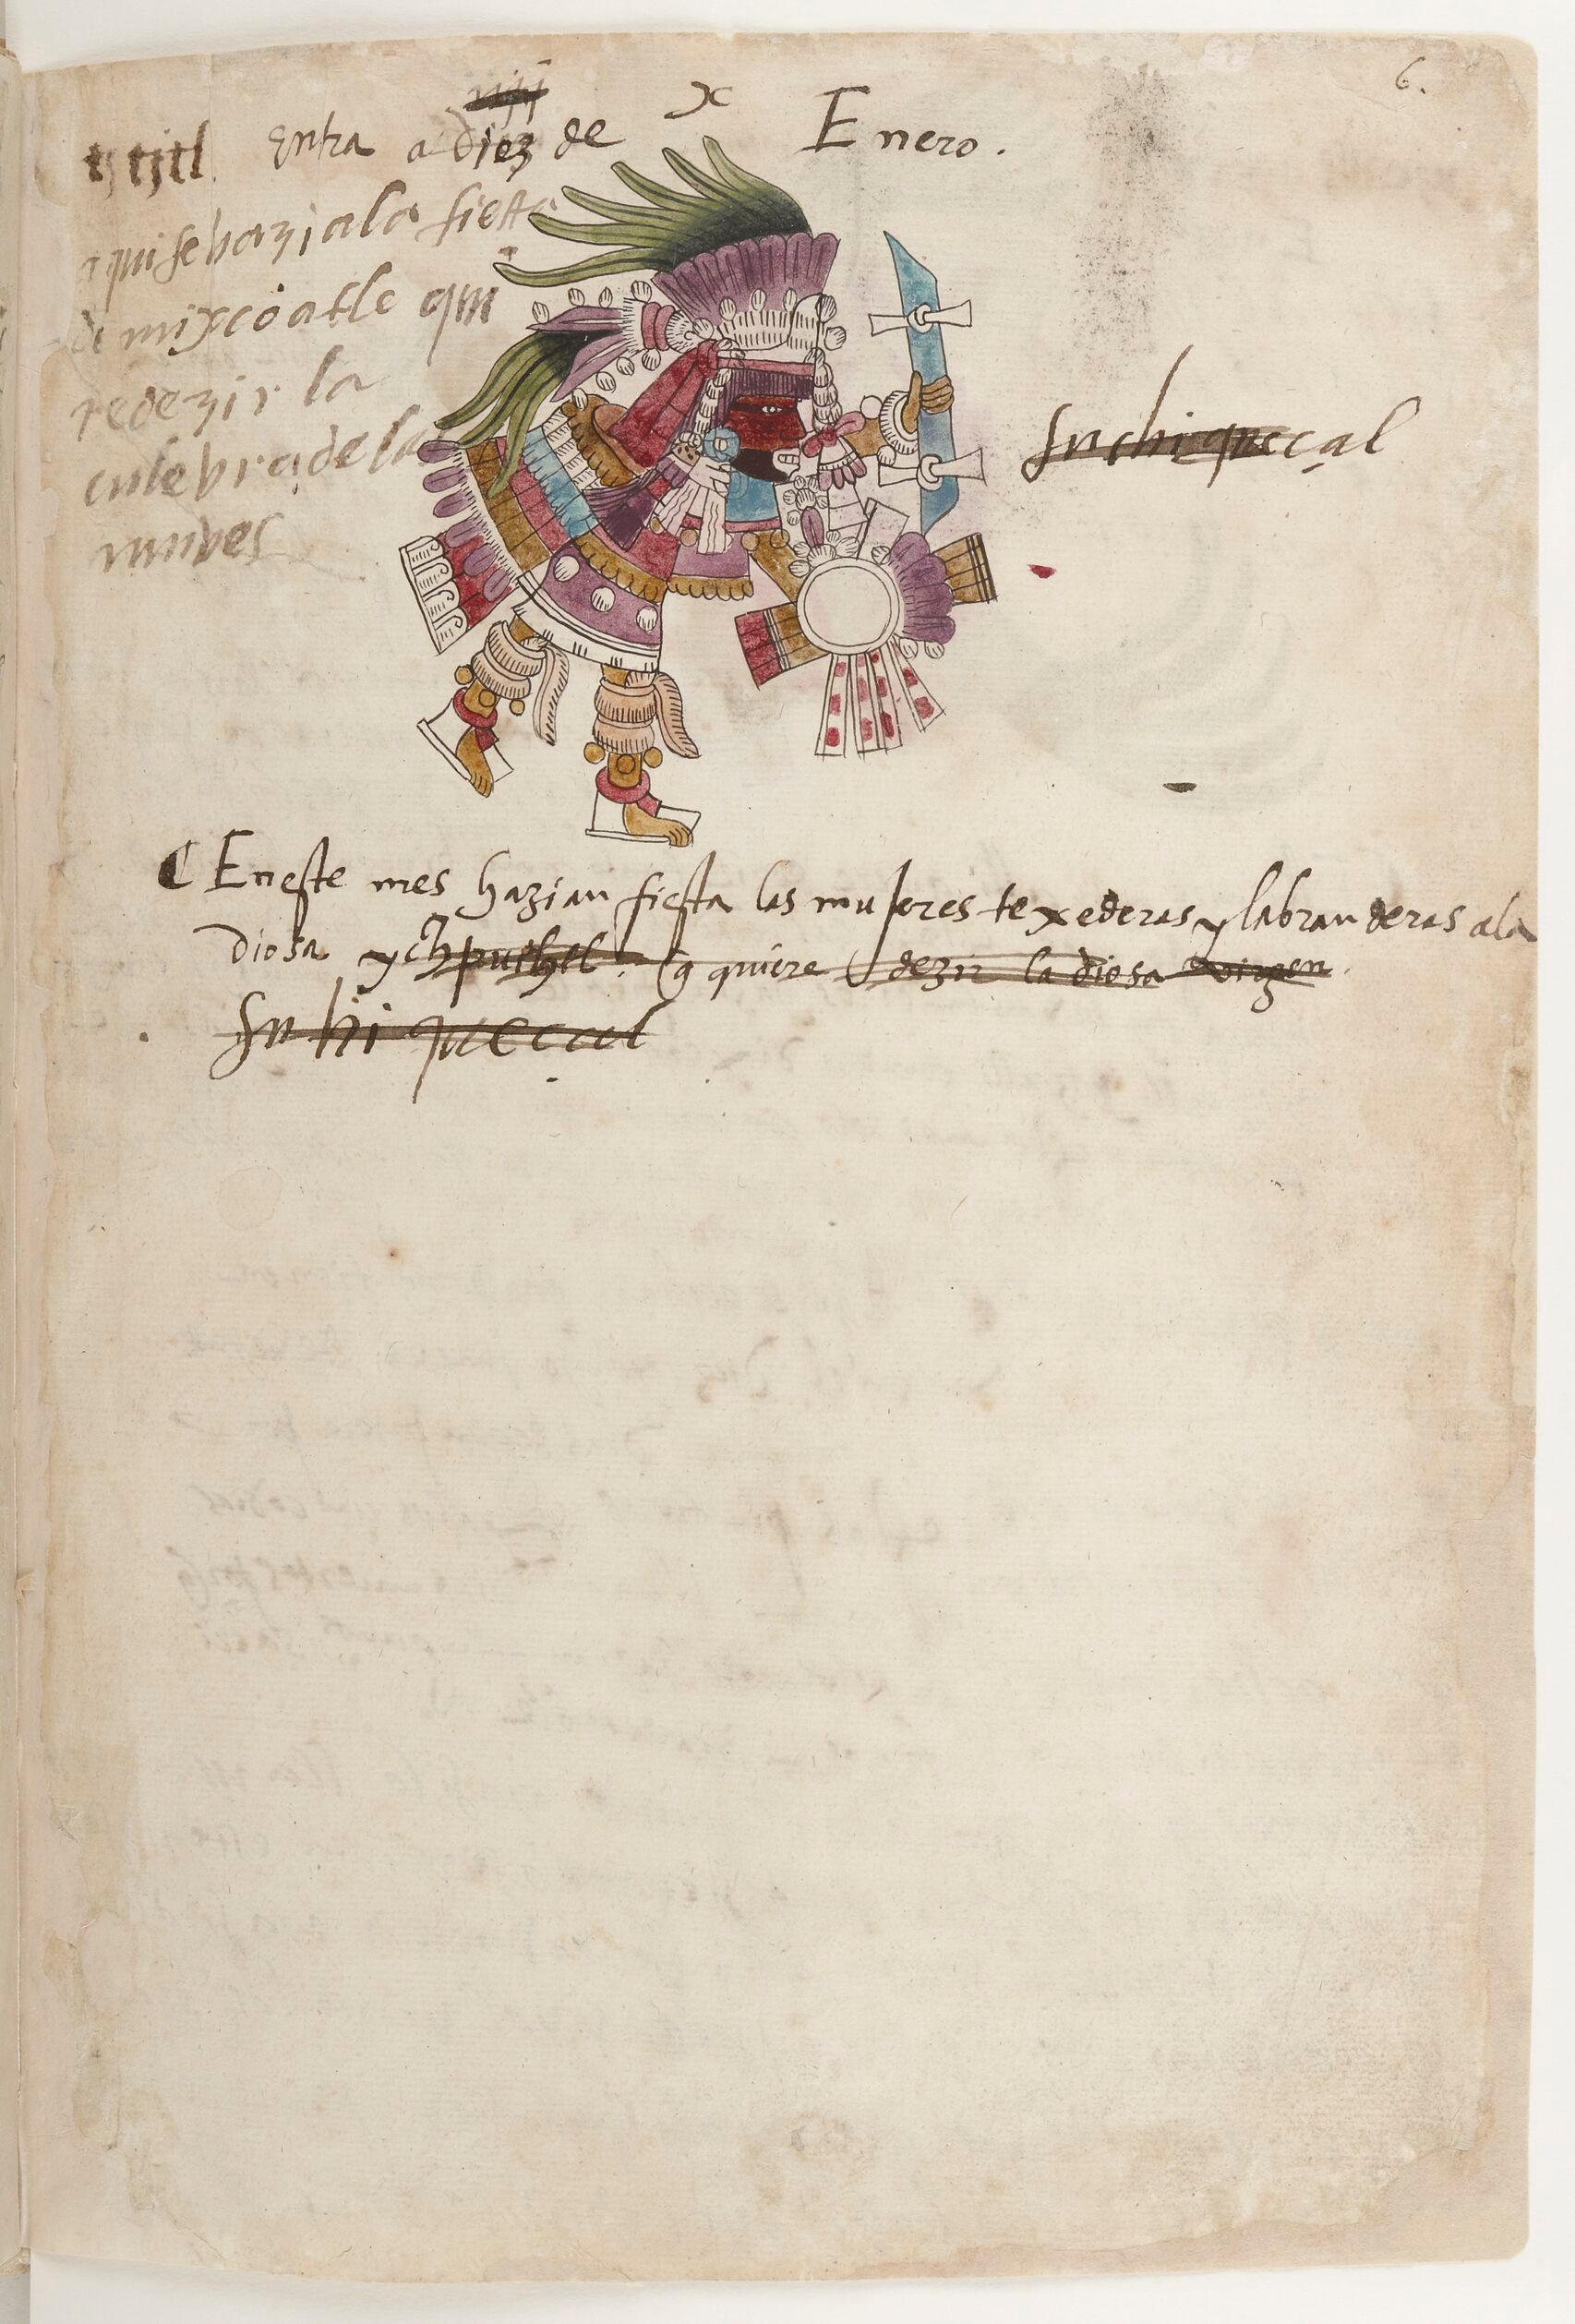 6.
x
tytjtl entra a diez de Enero.
aqui se hazia la fiesta
de mixcoatle qui
re dezir la
culebra de la
nuves
Suchiqueçal
En este mes hazian fiesta las mujeres texederas y labranderas ala
diosa ychpuchtl. q quiere dezir la diosa virgen.
Suhiqueçal